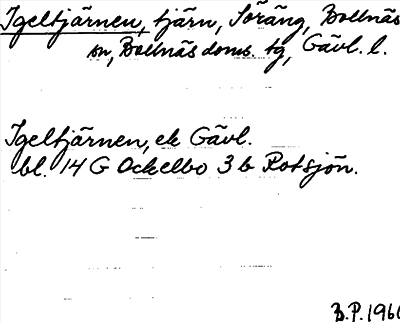 Igeltjärnen, tjärn, Söräng, Bollnäs
sn, Bollnäs doms. tg, Gävl. l.
Igeltjärnen, ek Gävl.
bl. 14 G Ockelbo 3 b Rotsjön.
B.P. 1966